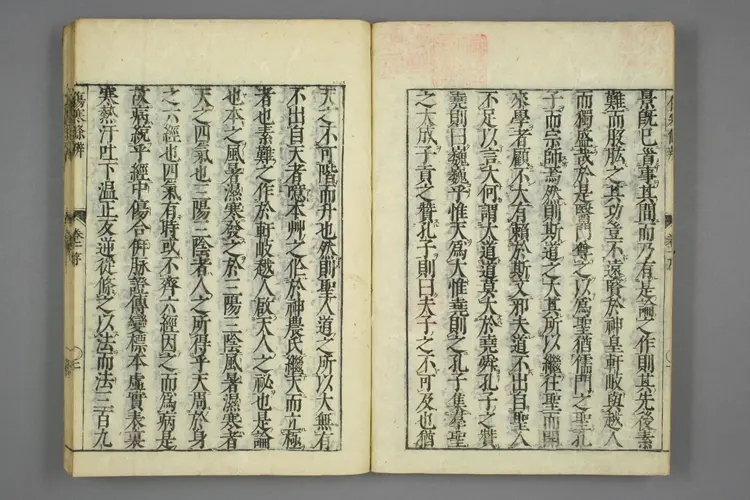 景旣已嘗事其間而乃有是論之作則其先後素
難而股肱之其功豈不遠晉於神皇軒岐與越人
而獨盛哉於是醫門尊之以爲聖猶儒門之聖孔
子而宗師焉然則斯道之大其所以繼往聖而開
來學者顧不大有賴於斯文邪大道不出自聖人
不足以言大何謂大道道莫大於堯舜孔子之贊
堯則曰巍巍乎惟天爲大惟堯則之孔子集羣聖
之大成子貢之贊孔子則曰夫子之不可及也猶
天之不可階而升也然則聖人道之所以大無有
不出自天者噫本艸之作於神農氏繼天而立極
者也素難之作於軒岐越人啟天人之祕也是論
也本之風暑濕寒發之於三陽三陰風暑濕寒者
天之四氣也三陽三陰者人之所得乎天周於身
之六經也四氣有時或不齊六經因之而爲病是
故病統乎經中傷合倂脉證傳變標本虛實表裏
寒熱汗吐下温正反逆從條之以法而法三百九
傷寒條辨
序
二